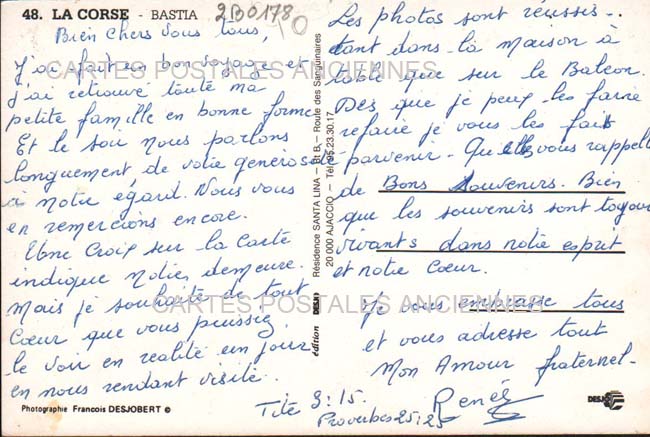 48. LA CORSE - BASTIA
2B0178
Bien chers vous tous,
J'ai fait un bon voyage et
j'ai retrouvé toute ma
petite famille en bonne forme
Et le soir nous parlons
longuement de votre générosité
à notre égard. Nous vous
en remercions encore.
Une Croix sur la Carte
indique notre demeure.
Mais je souhaite de tout
Cœur que vous puissiez
le voir en réalité un jour
en nous rendant visite.
Photographie Francois DESJOBERT ©
Tite 3:15.
Proverbes 25:25
édition DESJ
Résidence SANTA LINA — Bt B, — Route des Sanguinaires
20 000 AJACCIO — Tél. 95.23.30.17
Les photos sont réussis -
tant dans la maison à
table que sur le Balcon.
Dès que je peux les faire
refaire je vous les fais
parvenir. Qu'elles vous rappelle
de Bons Souvenirs. Bien
que les souvenirs sont toujours
vivants dans notre esprit
et notre Cœur.
Je vous embrasse tous
et vous adresse tout
Mon Amour fraternel -
Renée
DESJ
CARTES POSTALES ANCIENNES
CARTES POSTALES ANCIENNES